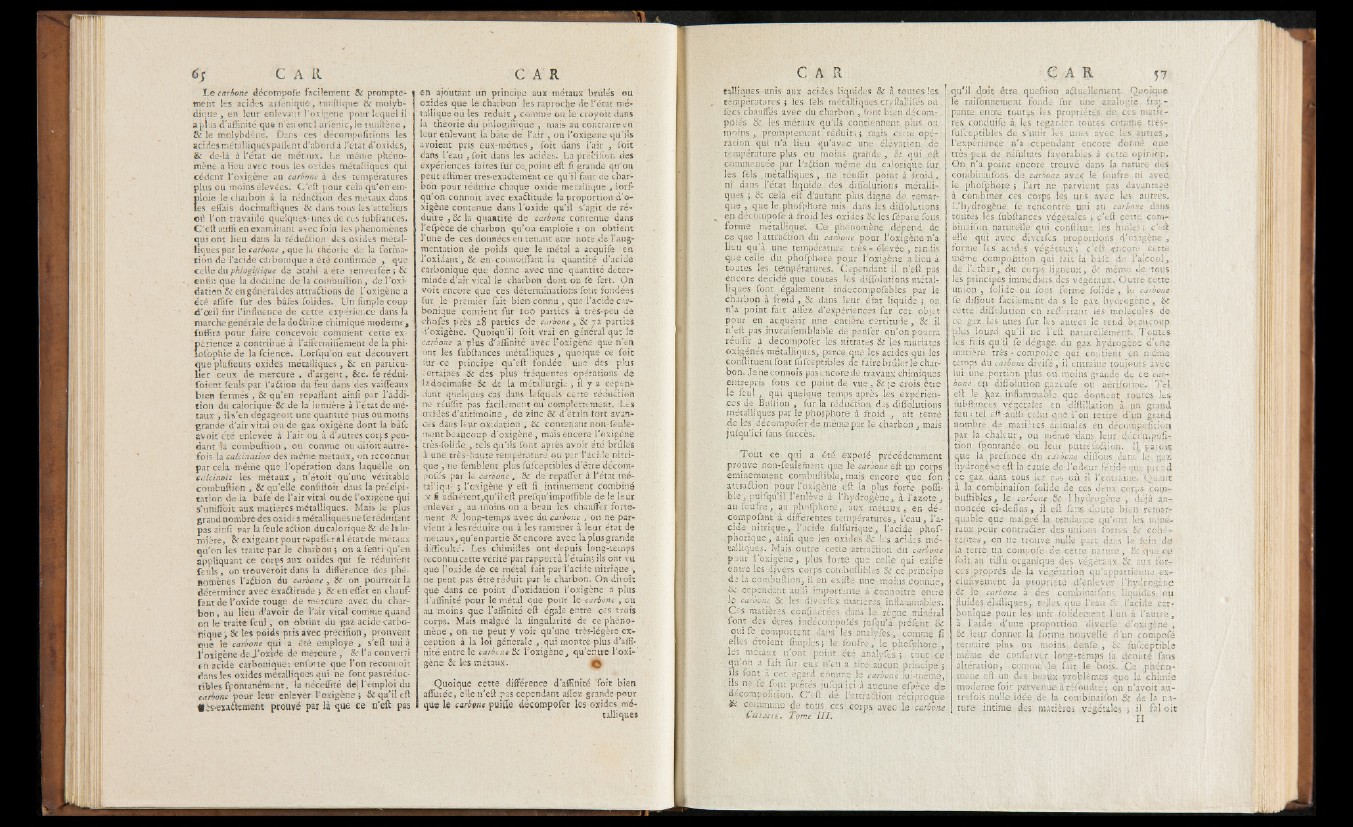 65 C A R
Le carbone décompoſe facilement & prompte-
ment les acides arſenique, tunſtique & molyb-
dique, en leur enlevant l'oxigène pour lequel il
a plus d'affinité que n'en ont l'arſenic, le tunſtène,
& le molybdène. Dans ces décompoſitions les
acides métalliques paſſent d'abord à l'état d'oxides,
& de-là à l'état de métaux. Le même phéno-
mène a lieu avec tous les oxides métalliques qui
cèdent l'oxigène au carbone à des températures
plus ou moins élevées. C'eſt pour cela qu'on em-
ploie le charbon à la réduction des métaux dans
les eſſais docimaſtiques & dans tous les atteliers
où l'on travaille quelques-unes de ces ſubſtances.
C'eſt auſſi en examinant avec ſoin les phénomènes
qui ont lieu dans la réduction des oxides métal-
liques par le carbone, que la théorie de la forma-
tion de l'acide carbonique a été confirmée, que
celle du phlogiſtique de Stahl a été renverſée; &
enfin que la doctrine de la combuſtion, de l'oxi-
dation & en général des attractions de l'oxigène a
été aſſiſe ſur des bâſes ſolides. Un ſimple coup
d'œil ſur l'influence de cette expérience dans la
marche générale de la doctrine chimique moderne,
ſuffira pour faire concevoir comment cette ex-
périence a contribué à l'affermiſſement de la phi-
loſophie de la ſcience. Lorſqu'on eut découvert
que pluſieurs oxides métalliques, & en particu-
lier ceux de mercure, d'argent, &c. ſe rédui-
ſoient ſeuls par l'action du feu dans des vaiſſeaux
bien fermés, & qu'en repaſſant ainſi par l'addi-
tion du calorique & de la lumière à l'état de mé-
taux, ils en dégageoit une quantité plus ou moins
grande d'air vital ou de gaz oxigène dont la bâſe
avoit été enlevée à l'air ou à d'autres corps pen-
dant la combuſtion, ou comme on diſoit autre-
fois la calcination des même métaux, on reconnut
par cela même que l'opération dans laquelle on
calcinoit les métaux, n'étoit qu'une véritable
combuſtion, & qu'elle conſiſtoit dans la précipi-
tation de la bâſe de l'air vital ou de l'oxigène qui
s'uniſſoit aux matières métalliques. Mais le plus
grand nombre des oxides métalliques ne ſe réduiſant
pas ainſi par la ſeule action du calorique & de la lu-
mière, & exigeant pour repaſſer à l'état de métaux
qu'on les traite par le charbon; on a ſenti qu'en
appliquant ce corps aux oxides qui ſe réduiſent
ſeuls, on trouveroit dans la différence des phé-
nomènes l'action du carbone, & on pourroit la
déterminer avec exactitude; & en effet en chauf-
fant de l'oxide rouge de mercure avec du char-
bon, au lieu d'avoir de l'air vital comme quand
on le traite ſeul, on obtint du gaz acide-carbo-
nique; & les poids pris avec préciſion, prouvent
que le carbone qui a été employé, s'eſt uni à
l'oxigène de l'oxide de mercure, & l'a converti
en acide carbonique: enſorte que l'on reconnoît
dans les oxides métalliques qui ne ſont pas réduc-
tibles ſpontanément, la néceſſité de l'emploi du
carbone pour leur enlever l'oxigène; & qu'il eſt
très-exactement prouvé par là que ce n'eſt pas
C A R
en ajoutant un principe aux métaux brulés ou
oxides que le charbon les raproche de l'état mé-
tallique ou les réduit, comme on le croyoit dans
la théorie du phlogiſtique, mais au contraire en
leur enlevant la bâſe de l'air, ou l'oxigène qu'ils
avoient pris eux-mêmes, ſoit dans l'air, ſoit
dans l'eau, ſoit dans les acides. La préciſion des
expériences faites ſur ce point eſt ſi grande qu'on
peut eſtimer tres-exactement ce qu'il faut de char-
bon pour réduire chaque oxide métallique, lorſ-
qu'on connoît avec exactitude la proportion d'o-
xigène contenue dans l'oxide qu'il s'agit de ré-
duire, & la quantité de carbone contenue dans
l'eſpèce de charbon qu'on emploie: on obtient
l'une de ces données en tenant une note de l'aug-
mentation de poids que le métal a acquiſe en
l'oxidant, & en connoiſſant la quantité d'acide
carbonique que donne avec une quantité déter-
minée d'air vital le charbon dont on ſe ſert. On
voit encore que ces déterminations ſont fondées
ſur le premier fait bien connu, que l'acide car-
bonique contient ſur 100 parties à très-peu de
choſes près 28 parties de carbone, & 72 parties
d'oxigène. Quoiqu'il ſoit vrai en général que le
carbone a plus d'affinité avec l'oxigène que n'en
ont les ſubſtances métalliques, quoique ce ſoit
ſur ce principe qu'eſt fondée une des plus
certaines & des plus fréquentes opérations de
la docimaſie & de la métallurgie, il y a cepen-
dant quelques cas dans leſquels cette réduction
ne réuſſit pas facilement ou complettement. Les
oxides d'antimoine, de zinc & d'étain fort avan-
cés dans leur oxidation, & contenant non-ſeule-
ment beaucoup d'oxigène, mais encore l'oxigène
très-ſolide, tels qu'ils ſont après avoir été brûlés
à une très-haute température ou par l'acide nitri-
que, ne ſemblent plus ſuſceptibles d'être décom-
poſés par le carbone, & de repaſſer à l'état mé-
tallique; l'oxigène y eſt ſi intimement combiné
& ſi adhérent, qu'il eſt preſqu'impoſſible de le leur
enlever, au moins on a beau les chauffer forte-
ment & long-temps avec du carbone, on ne par-
vient à les réduire ou à les ramener à leur état de
métaux, qu'en partie & encore avec la plus grande
difficulté. Les chimiſtes ont depuis long-temps
reconnu cette vérité par rapport à l'étain; ils ont vu
que l'oxide de ce métal fait par l'acide nitrique,
ne peut pas être réduit par le charbon. On diroit
que dans ce point d'oxidation l'oxigène a plus
d'affinité pour le métal que pour le carbone, ou
au moins que l'affinité eſt égale entre ces trois
corps. Mais malgré la ſingularité de ce phéno-
mène, on ne peut y voir qu'une très-légère ex-
ception à la loi générale, qui montre plus d'affi-
nité entre le carbone & l'oxigène, qu'entre l'oxi-
gène & les métaux.
Quoique cette différence d'affinité ſoit bien
aſſurée, elle n'eſt pas cependant aſſez grande pour
que le carbone puiſſe décompoſer les oxides mé-
talliques
C A R
talliques unis aux acides liquides & à toutes les
températures; les ſels métalliques cryſtalliſés ou
ſecs chauffés avec du charbon, ſont bien décom-
poſés & les métaux qu'ils contiennent plus ou
moins, promptement réduits; mais cette opé-
ration qui n'a lieu qu'avec une élévation de
température plus ou moins grande, & qui eſt
commencée par l'action même du calorique ſur
les ſels métalliques, ne réuſſit point à froid,
ni dans l'état liquide des diſſolutions métalli-
ques; & cela eſt d'autant plus digne de remar-
que, que le phoſphore mis dans les diſſolutions
en décompoſe à froid les oxides & les ſépare ſous
forme métallique. Ce phénomène dépend de
ce que l'attraction du carbone pour l'oxigène n'a
lieu qu'à une température très-élevée, tandis
que celle du phoſphore pour l'oxigène a lieu à
toutes les températures. Cependant il n'eſt pas
encore décidé que toutes les diſſolutions métal-
liques ſont également indécompoſables par le
charbon à froid, & dans leur état liquide; on
n'a point fait aſſez d'expériences ſur cet objet
pour en acquérir une entière certitude, & il
n'eſt pas invraiſemblable de penſer qu'on pourra
réuſſir à décompoſer les nitrates & les muriates
oxigénés métalliques, parce que les acides qui les
conſtituent ſont ſuſceptibles de faire brûler le char-
bon. Je ne connois pas encore de travaux chimiques
entrepris ſous ce point de vue, & je crois être
le ſeul, qui quelque temps après les expérien-
ces de Bullion, ſur la réduction des diſſolutions
métalliques par le phoſphore à froid, ait tenté
de les décompoſer de même par le charbon, mais
juſqu'ici ſans ſuccès.
Tout ce qui a été expoſé précédemment
prouve non-ſeulement que le carbone eſt un corps
éminemment combuſtible, mais encore que ſon
attraction pour l'oxigène eſt la plus forte poſſi-
ble, puiſqu'il l'enlève à l'hydrogène, à l'azote,
au ſoufre, au phoſphore, aux métaux, en dé-
compoſant à différentes températures, l'eau, l'a-
cide nitrique, l'acide ſulfurique, l'acide phoſ-
phorique, ainſi que les oxides & les acides mé-
talliques. Mais outre cette attraction du carbone
pour l'oxigène, plus forte que celle qui exiſte
entre les divers corps combuſtibles & ce principe
de la combuſtion, il en exiſte une moins connue,
& cependant auſſi importante à connoître entre
le carbone & les diverſes matières inflammables.
Ces matières conſidérées dans le règne minéral
ſont des êtres indécompoſés juſqu'à préſent &
qui ſe comportent dans les analyſes, comme ſi
elles étoient ſimples; le ſoufre, le phoſphore,
les métaux n'ont point été analyſés; tout ce
qu'on a fait ſur eux n'en a tiré aucun principe;
ils ſont à cet égard comme le carbone lui-même,
ils ne ſe ſont prêtés juſqu'ici à aucune eſpèce de
décompoſition. C'eſt de l'attraction réciproque
& commune de tous ces corps avec le carbone
Chimie. Tome III.
C A R 57
qu'il doit être queſtion actuellement. Quoique
le raiſonnement fondé ſur une analogie frap-
pante entre toutes les propriétés de ces matiè-
res conduiſe à les regarder toutes comme très-
ſuſceptibles de s'unir les unes avec les autres,
l'expérience n'a cependant encore donné que
très peu de réſultats favorables à cette opinion.
On n'a point encore trouvé dans la nature des
combinaiſons de carbone avec le ſoufre ni avec
le phoſphore; l'art ne parvient pas davantage
à combiner ces corps les uns avec les autres.
L'hydrogène ſe rencontre uni au carbone dans
toutes les ſubſtances végétales; c'eſt cette com-
binaiſon naturelle qui conſtitue les huiles; c'eſt
elle qui avec diverſes proportions d'oxigène,
forme les acides végétaux; c'eſt encore cette
même compoſition qui fait la bâſe de l'alcool,
de l'éther, du corps ligneux, & même de tous
les principes immédiats des végétaux. Outre cette
union, ſolide ou ſous forme ſolide, le carbone
ſe diſſout facilement dans le gaz hydrogène, &
cette diſſolution en reſſerrant les molécules de
ce gaz les unes ſur les autres le rend beaucoup
plus lourd qu'il ne l'eſt naturellement. Toutes
les fois qu'il ſe dégage du gaz hydrogène d'une
matière très-compoſée qui contient en même
temps du carbone diviſé, il entraîne toujours avec
lui une portion plus ou moins grande de ce car-
bone en diſſolution gazeuſe ou aériforme. Tel
eſt le gaz inflammable que donnent toutes les
ſubſtances végétales en diſtillation à un grand
feu; tel eſt auſſi celui que l'on retire d'un grand
nombre de matières animales en décompoſition
par la chaleur, ou même dans leur décompoſi-
tion ſpontanée ou leur putréfaction. Il paroît
que la préſence du carbone diſſous dans le gaz
hydrogène eſt la cauſe de l'odeur fétide que prend
ce gaz dans tous les cas où il l'entraîne. Quant
à la combinaiſon ſolide de ces deux corps com-
buſtibles, le carbone & l'hydrogène, déjà an-
noncée ci-deſſus, il eſt ſans doute bien remar-
quable que malgré la tendance qu'ont les miné-
raux pour contracter des unions fortes & cohé-
rentes, on ne trouve nulle part dans le ſein de
la terre un compoſé de cette nature, & que ce
ſoit au tiſſu organique des végétaux & aux for-
ces propres de la végétation qu'appartienne ex-
cluſivement la propriété d'enlever l'hydrogène
& le carbone à des combinaiſons liquides ou
fluides élaſtiques, telles que l'eau & l'acide car-
bonique pour les unir ſolidement l'un à l'autre,
à l'aide d'une proportion diverſe d'oxigène,
& leur donner la forme nouvelle d'un compoſé
ternaire plus ou moins denſe, & ſuſceptible
même de conſerver long-temps ſa denſité ſans
altération, comme le fait le bois. Ce phéno-
mène eſt un des beaux problêmes que la chimie
moderne ſoit parvenue à réſoudre; on n'avoit au-
trefois nulle idée de la combinaiſon & de la na-
ture intime des matières végétales; il falloit
H